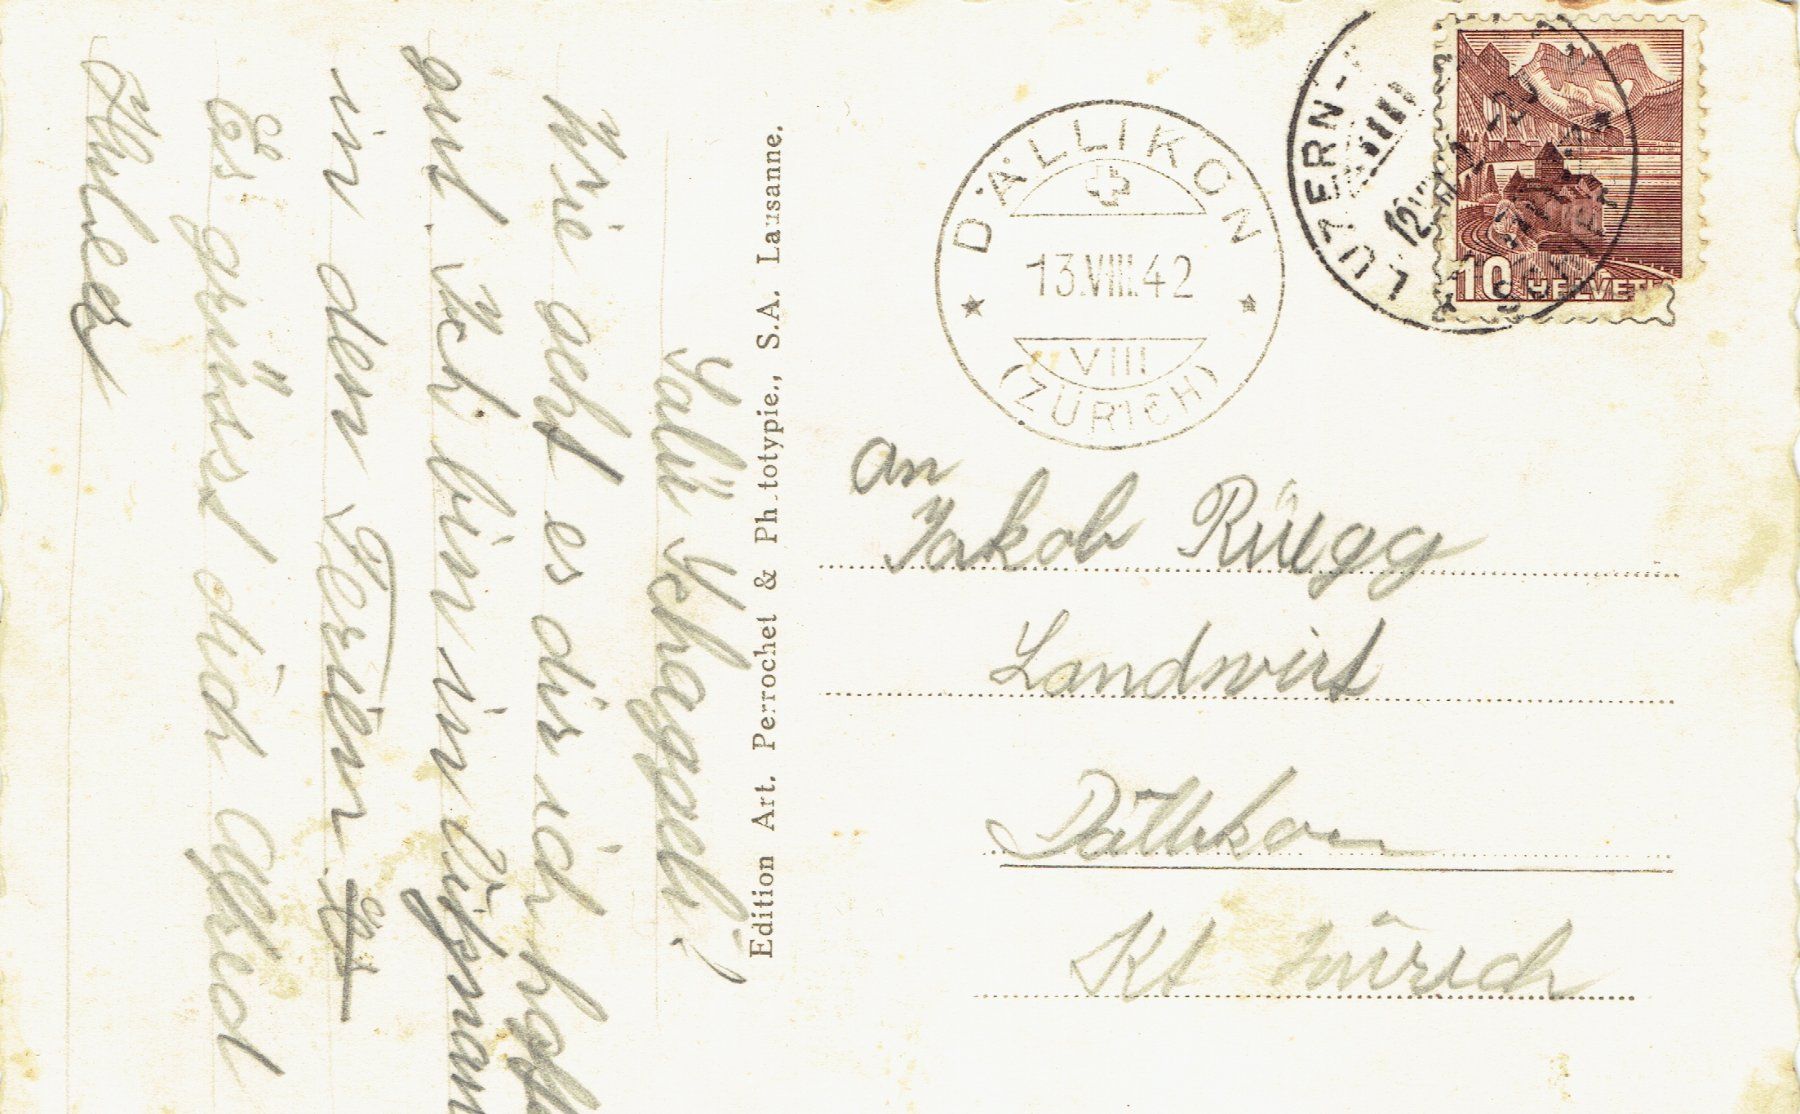 Salü Schaggeli!
Wie geht es dir ich hoffe
gut. Ich bin in Vitznau
in den Ferien. Es
Es grüsst dich Alfred
Edition Art. Perrochet & Phototypie., S.A. Lausanne.
DÄLLIKON
13.VIII.42
VIII
(ZÜRICH)
LUZERN-
12
10 HELVETIA
An
Jakob Rüegg
Landwirt
Dällikon
Kt Zürich